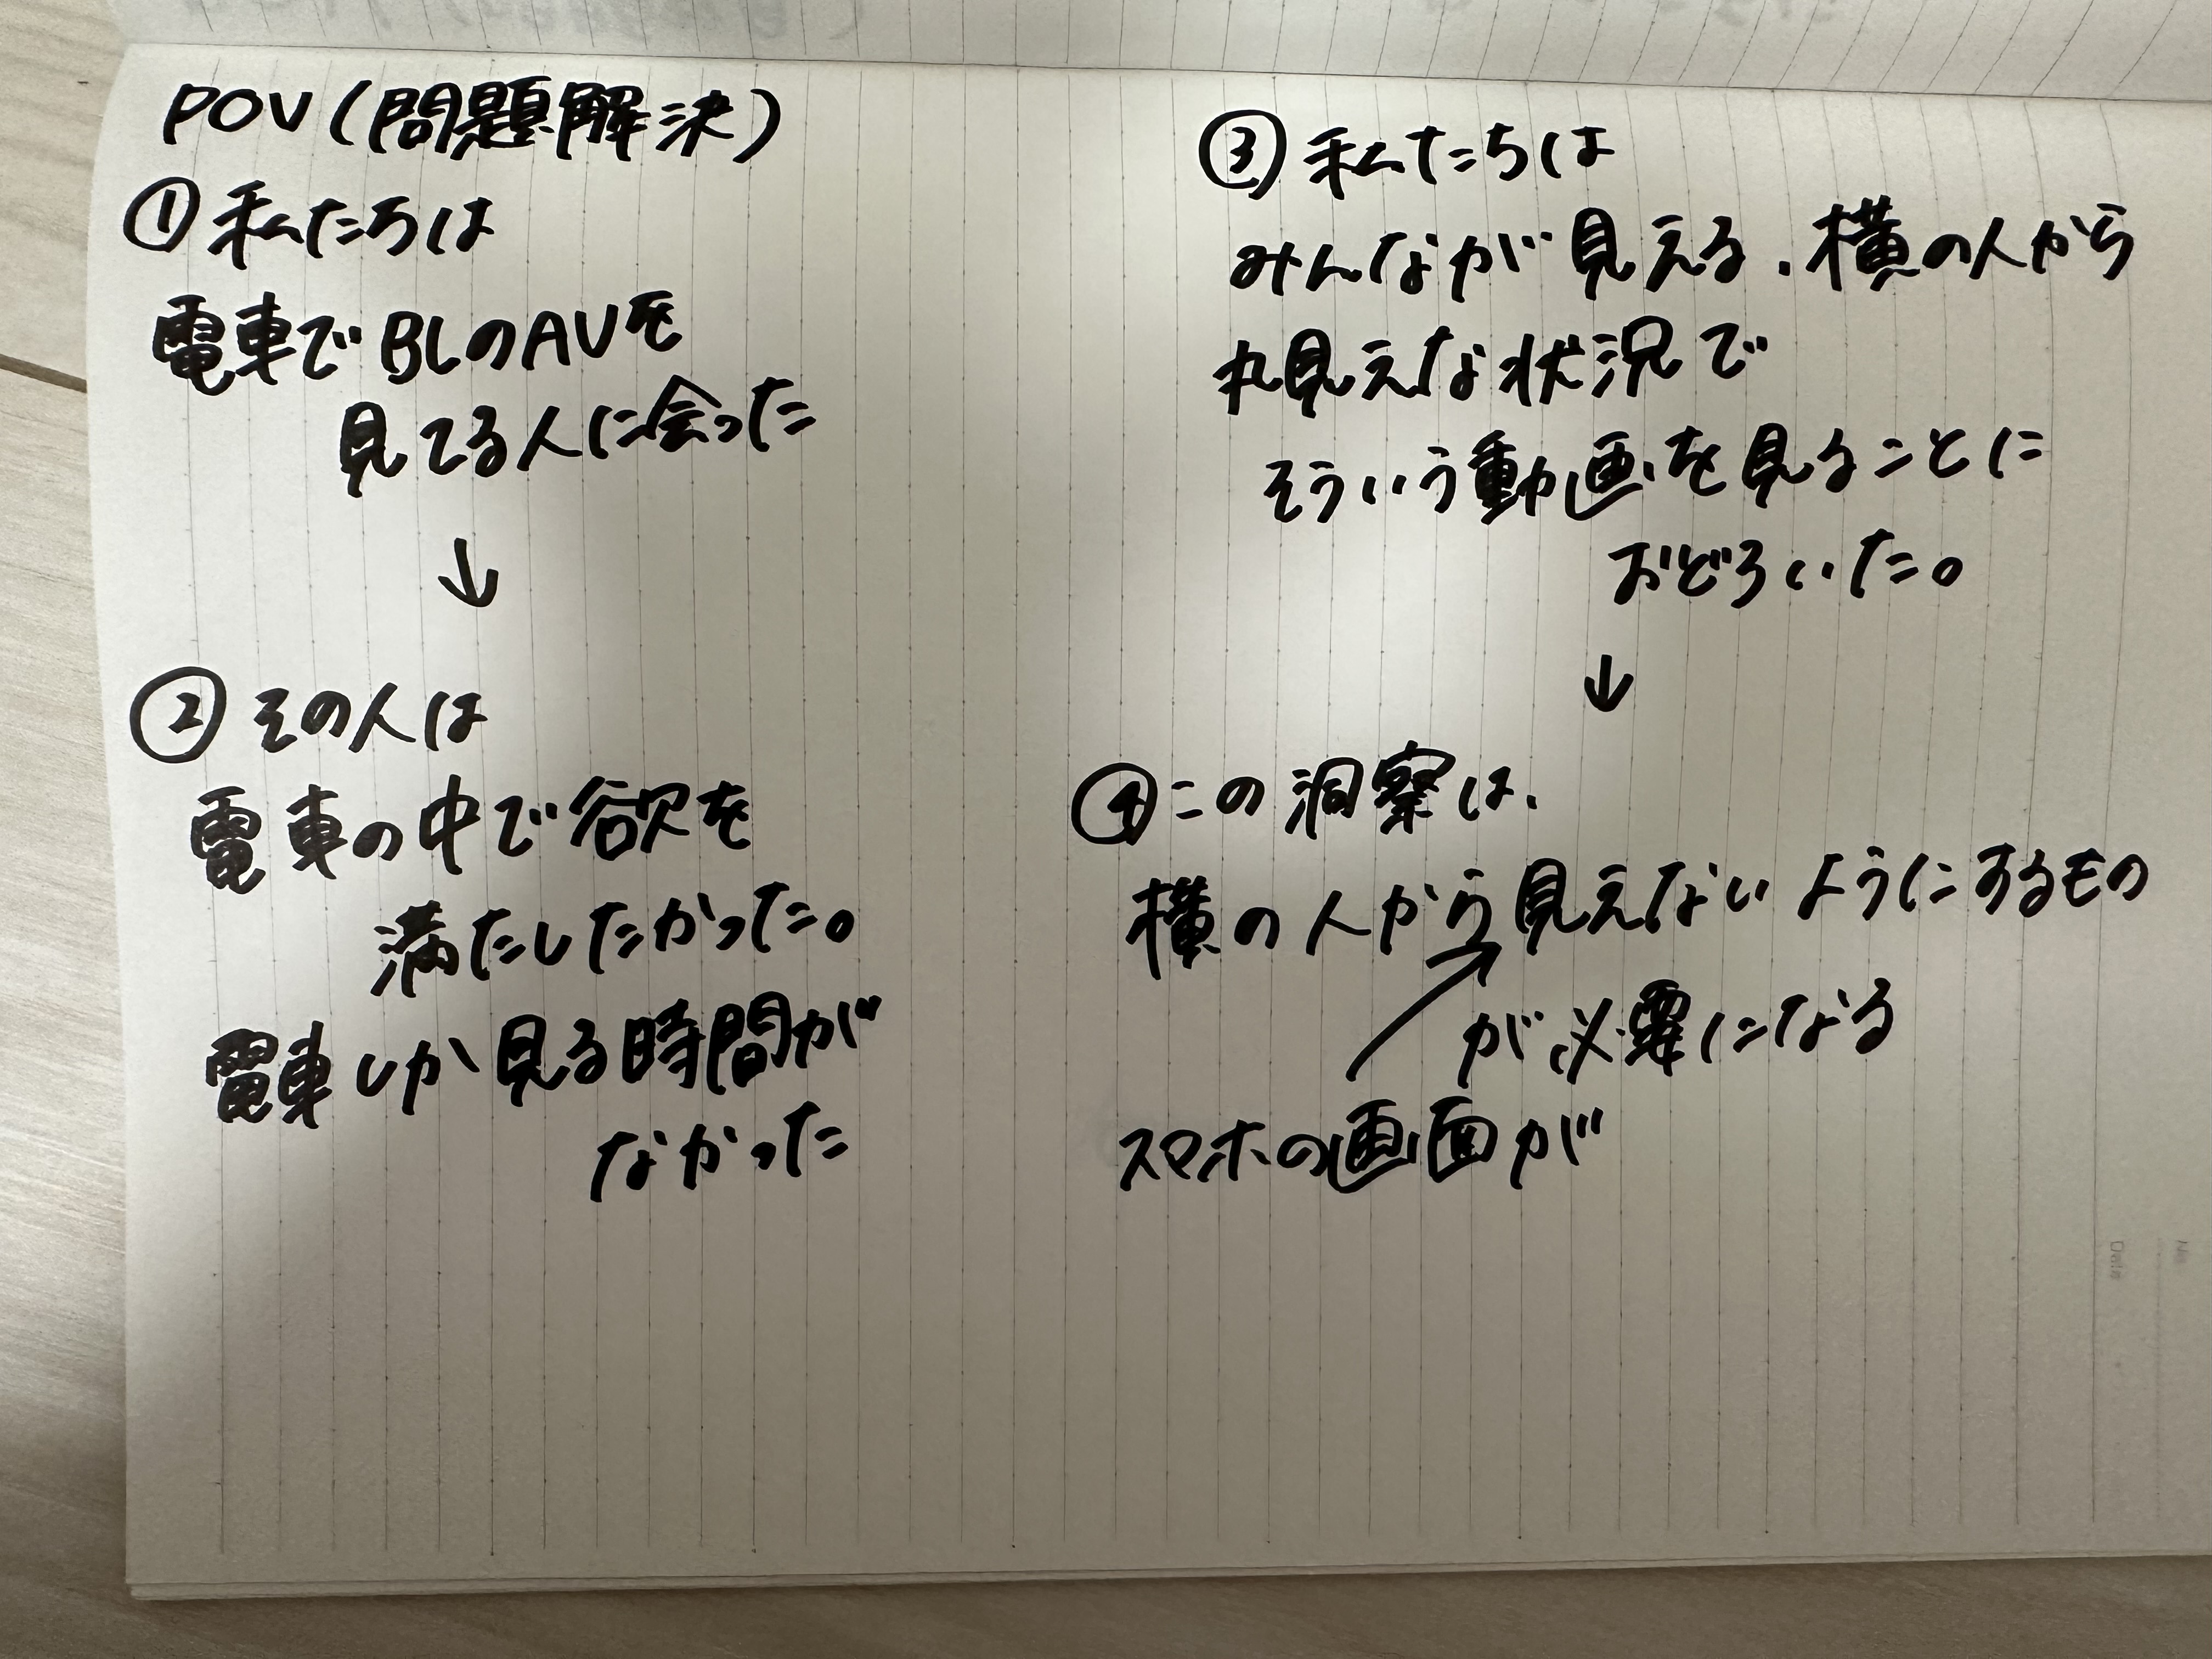 POV(問題解決)
① 私たちは
電車でBLのAVを
見てる人に会った
↓
② その人は
電車の中で欲を
満たしたかった。
電車しか見る時間が
なかった
③ 私たちは
みんなが見える、横の人から
丸見えな状況で
そういう動画を見ることに
おどろいた。
↓
④ この洞察は、
横の人から見えないようにするもの
が必要になる
スマホの画面が